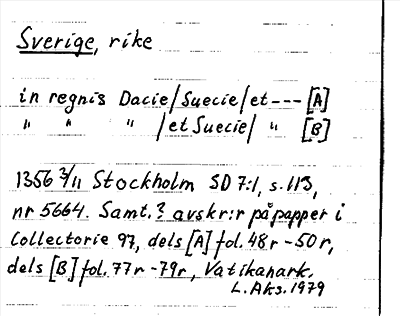 Sverige, rike
in regnis Dacie/Suecie/et --- [A]
" " " /et Suecie/ " [B]
1356 3/11 Stockholm SD 7:1, s. 113,
nr 5664. Samt.? avskr:r på papper i
Collectorie 97, dels [A] fol. 48r - 50r,
dels [B] fol. 77r - 79r, Vatikanark.
L. Aks. 1979